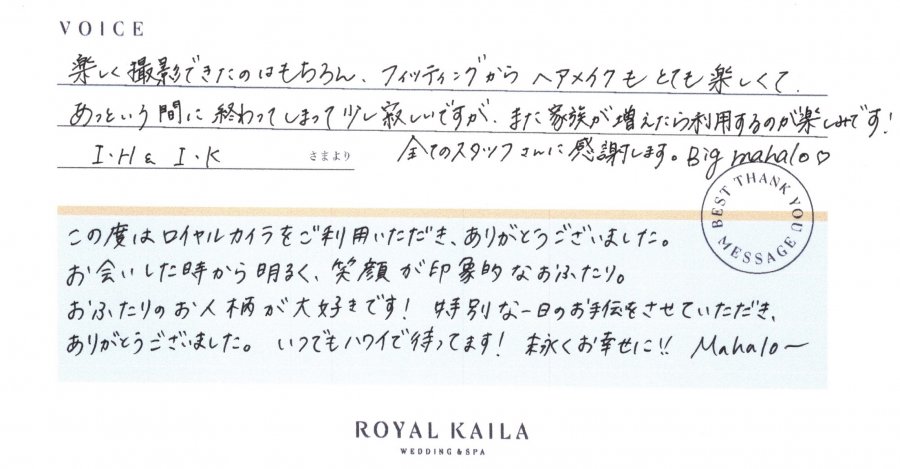 VOICE
楽しく撮影できたのはもちろん、フィッティングから ヘアメイクも とても楽しくて
あっという間に 終わってしまって少し寂しいですが、また家族が増えたら利用するのが楽しみです!
I・H & I・K さまより 全てのスタッフさんに感謝します。Big mahalo♡
BEST THANK YOU MESSAGE
この度はロイヤルカイラをご利用いただき、ありがとうございました。
お会いした時から明るく、笑顔が印象的なおふたり。
おふたりのお人柄が大好きです! 特別な一日のお手伝をさせていただき、
ありがとうございました。 いつでもハワイで待ってます! 末永くお幸せに!! Mahalo〜
ROYAL KAILA
WEDDING & SPA